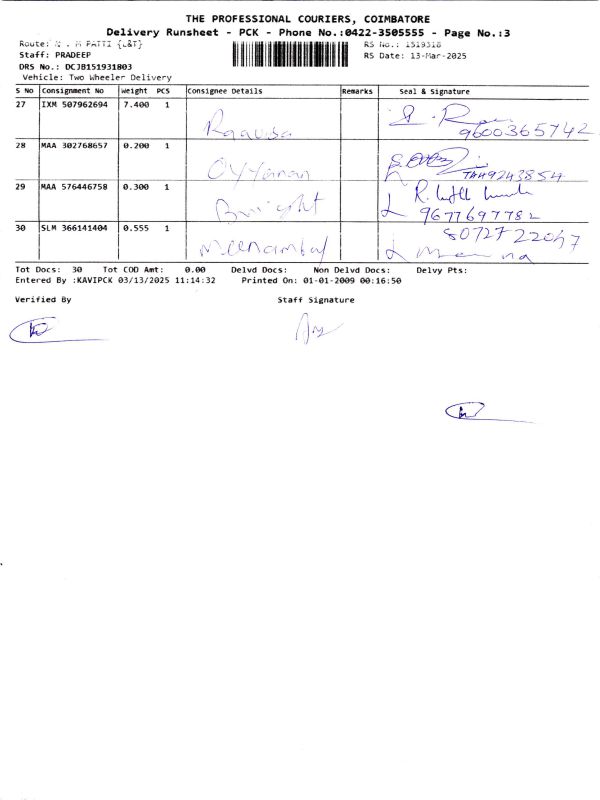 THE PROFESSIONAL COURIERS, COIMBATORE
Delivery Runsheet - PCK - Phone No.:0422-3505555 - Page No.:3
Route: PATTI {L&T} RS No.: 1519318
Staff: PRADEEP RS Date: 13-Mar-2025
DRS No.: DCJB151931803
Vehicle: Two Wheeler Delivery
S No Consignment No Weight PCS Consignee Details Remarks Seal & Signature
27 IXM 507962694 7.400 1
9600365742
28 MAA 302768657 0.200 1
29 MAA 576446758 0.300 1 Bright
9677697782
30 SLM 366141404 0.555 1 Meenambal
Tot Docs: 30 Tot COD Amt: 0.00 Delvd Docs: Non Delvd Docs: Delvy Pts:
Entered By :KAVIPCK 03/13/2025 11:14:32 Printed On: 01-01-2009 00:16:50
Verified By Staff Signature